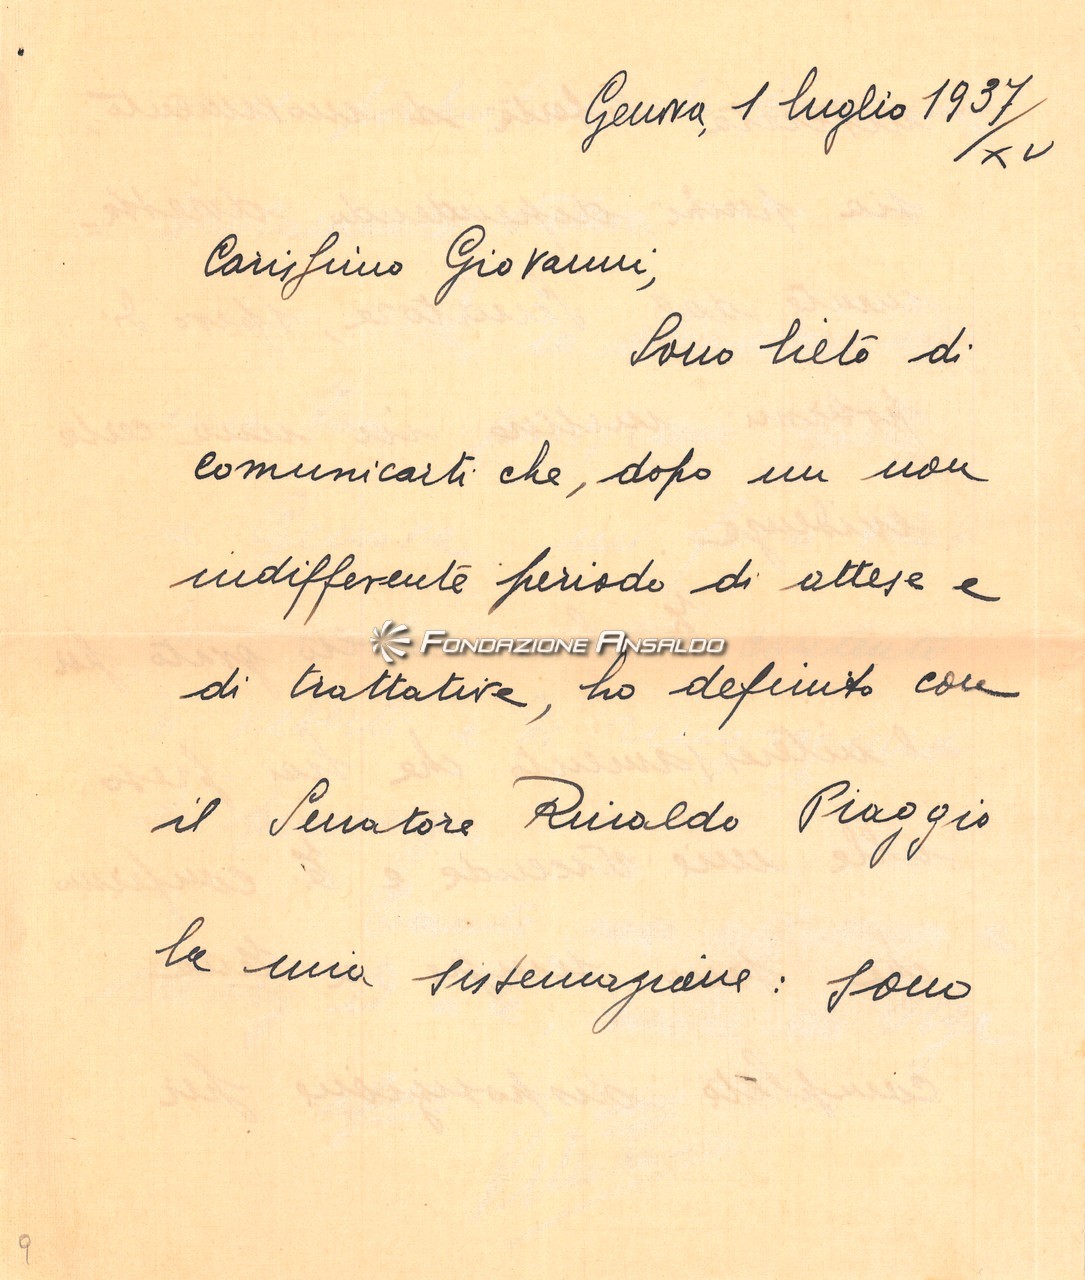 Genova, 1 luglio 1937/XV
Carissimo Giovanni,
Sono lieto di
comunicarti che, dopo un non
indifferente periodo di attese e
FONDAZIONE ANSALDO
di trattative, ho definito con
il Senatore Rinaldo Piaggio
la mia sistemazione: sono
9